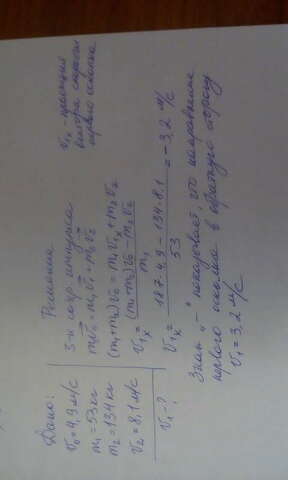 Дано:
v₀ = 4,9 м/с
m₁ = 53 кг
m₂ = 134 кг
v₂ = 8,1 м/с
v₁ - ?
Решение
З-н сохр. импульса
mv⃗₀ = m₁v⃗₁ + m₂v⃗₂
(m₁+m₂)v₀ = m₁v₁ₓ + m₂v₂
v₁ₓ = ((m₁+m₂)v₀ - m₂v₂) / m₁
v₁ₓ = (187·4,9 - 134·8,1) / 53 = -3,2 м/с
Знак "-" показывает, что направление
первого осколка в обратную сторону
v₁ = 3,2 м/с
v₁ₓ - проекция
вектора скорости
первого осколка